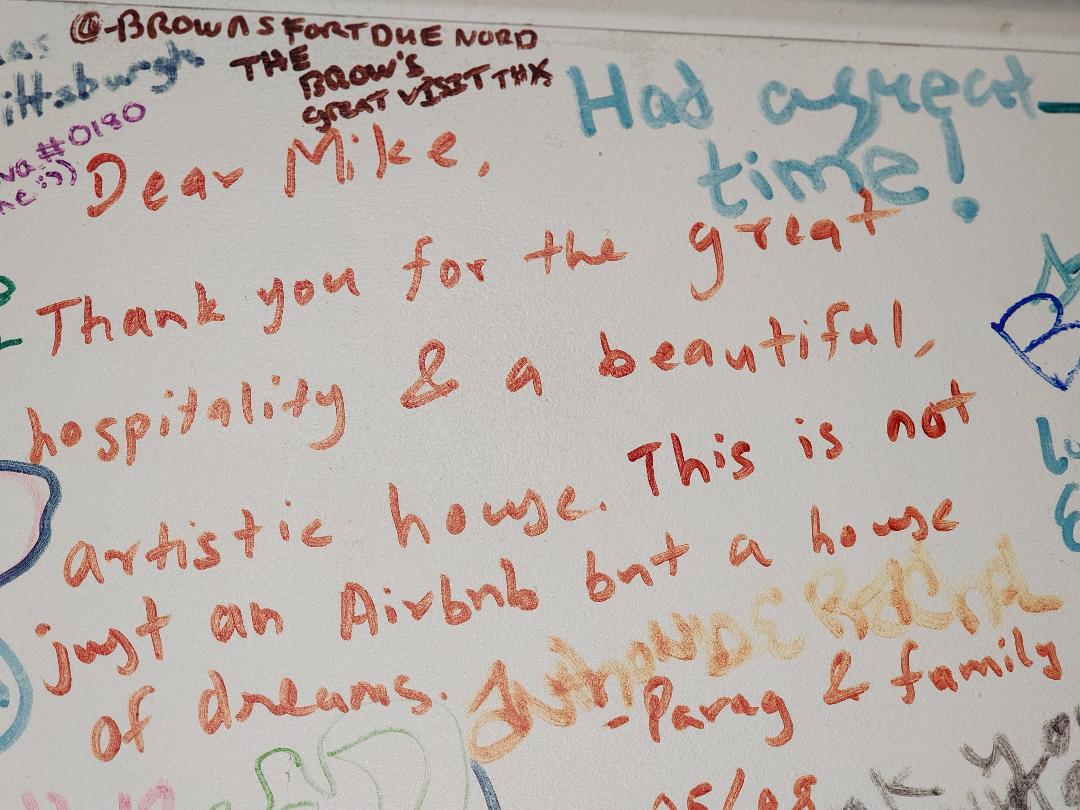 @-BROWNSFORTDUE NORD
THE
BROW'S
GREAT VISIT THX
ittsburgh
#0180
Had a great
time!
Dear Mike,
Thank you for the great
hospitality & a beautiful,
artistic house. This is not
just an Airbnb but a house
of dreams.
- Parag & family
05/08